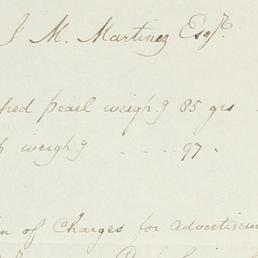 J M. Martinez Esqr.
ched pearl weighg 85 grs
weighg ..... 97.
n of Charges for Advertisem